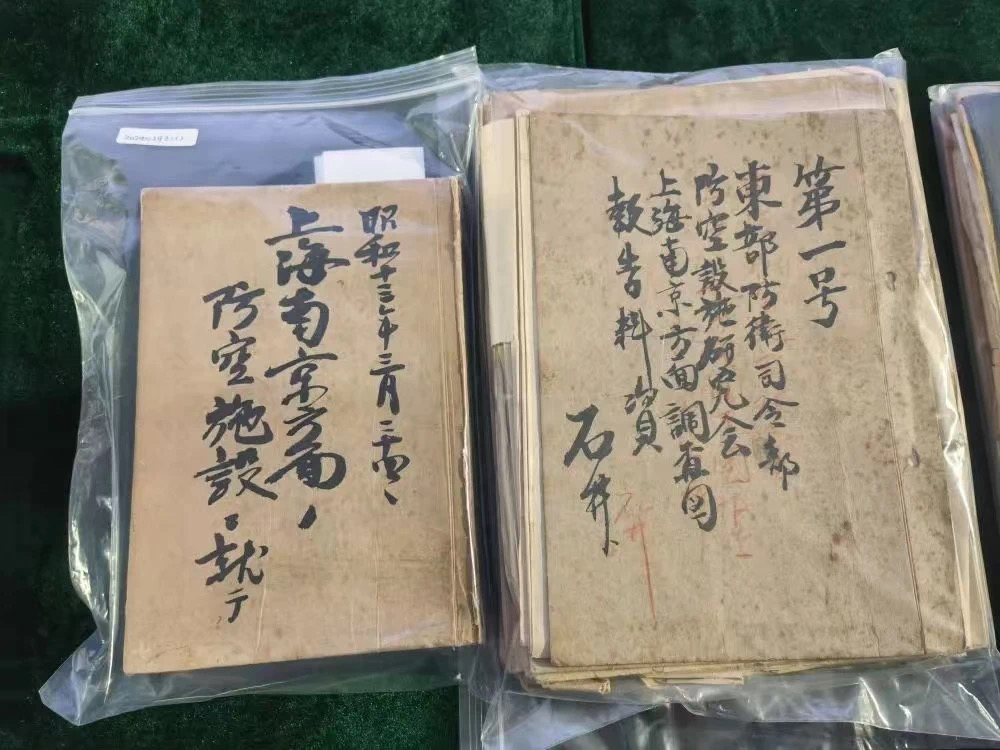 昭和十三年三月
上海南京方面ノ
防空施設ニ就テ
第一号
東部防衛司令部
防空設施研究会
上海南京方面調査団
報告料資
石井